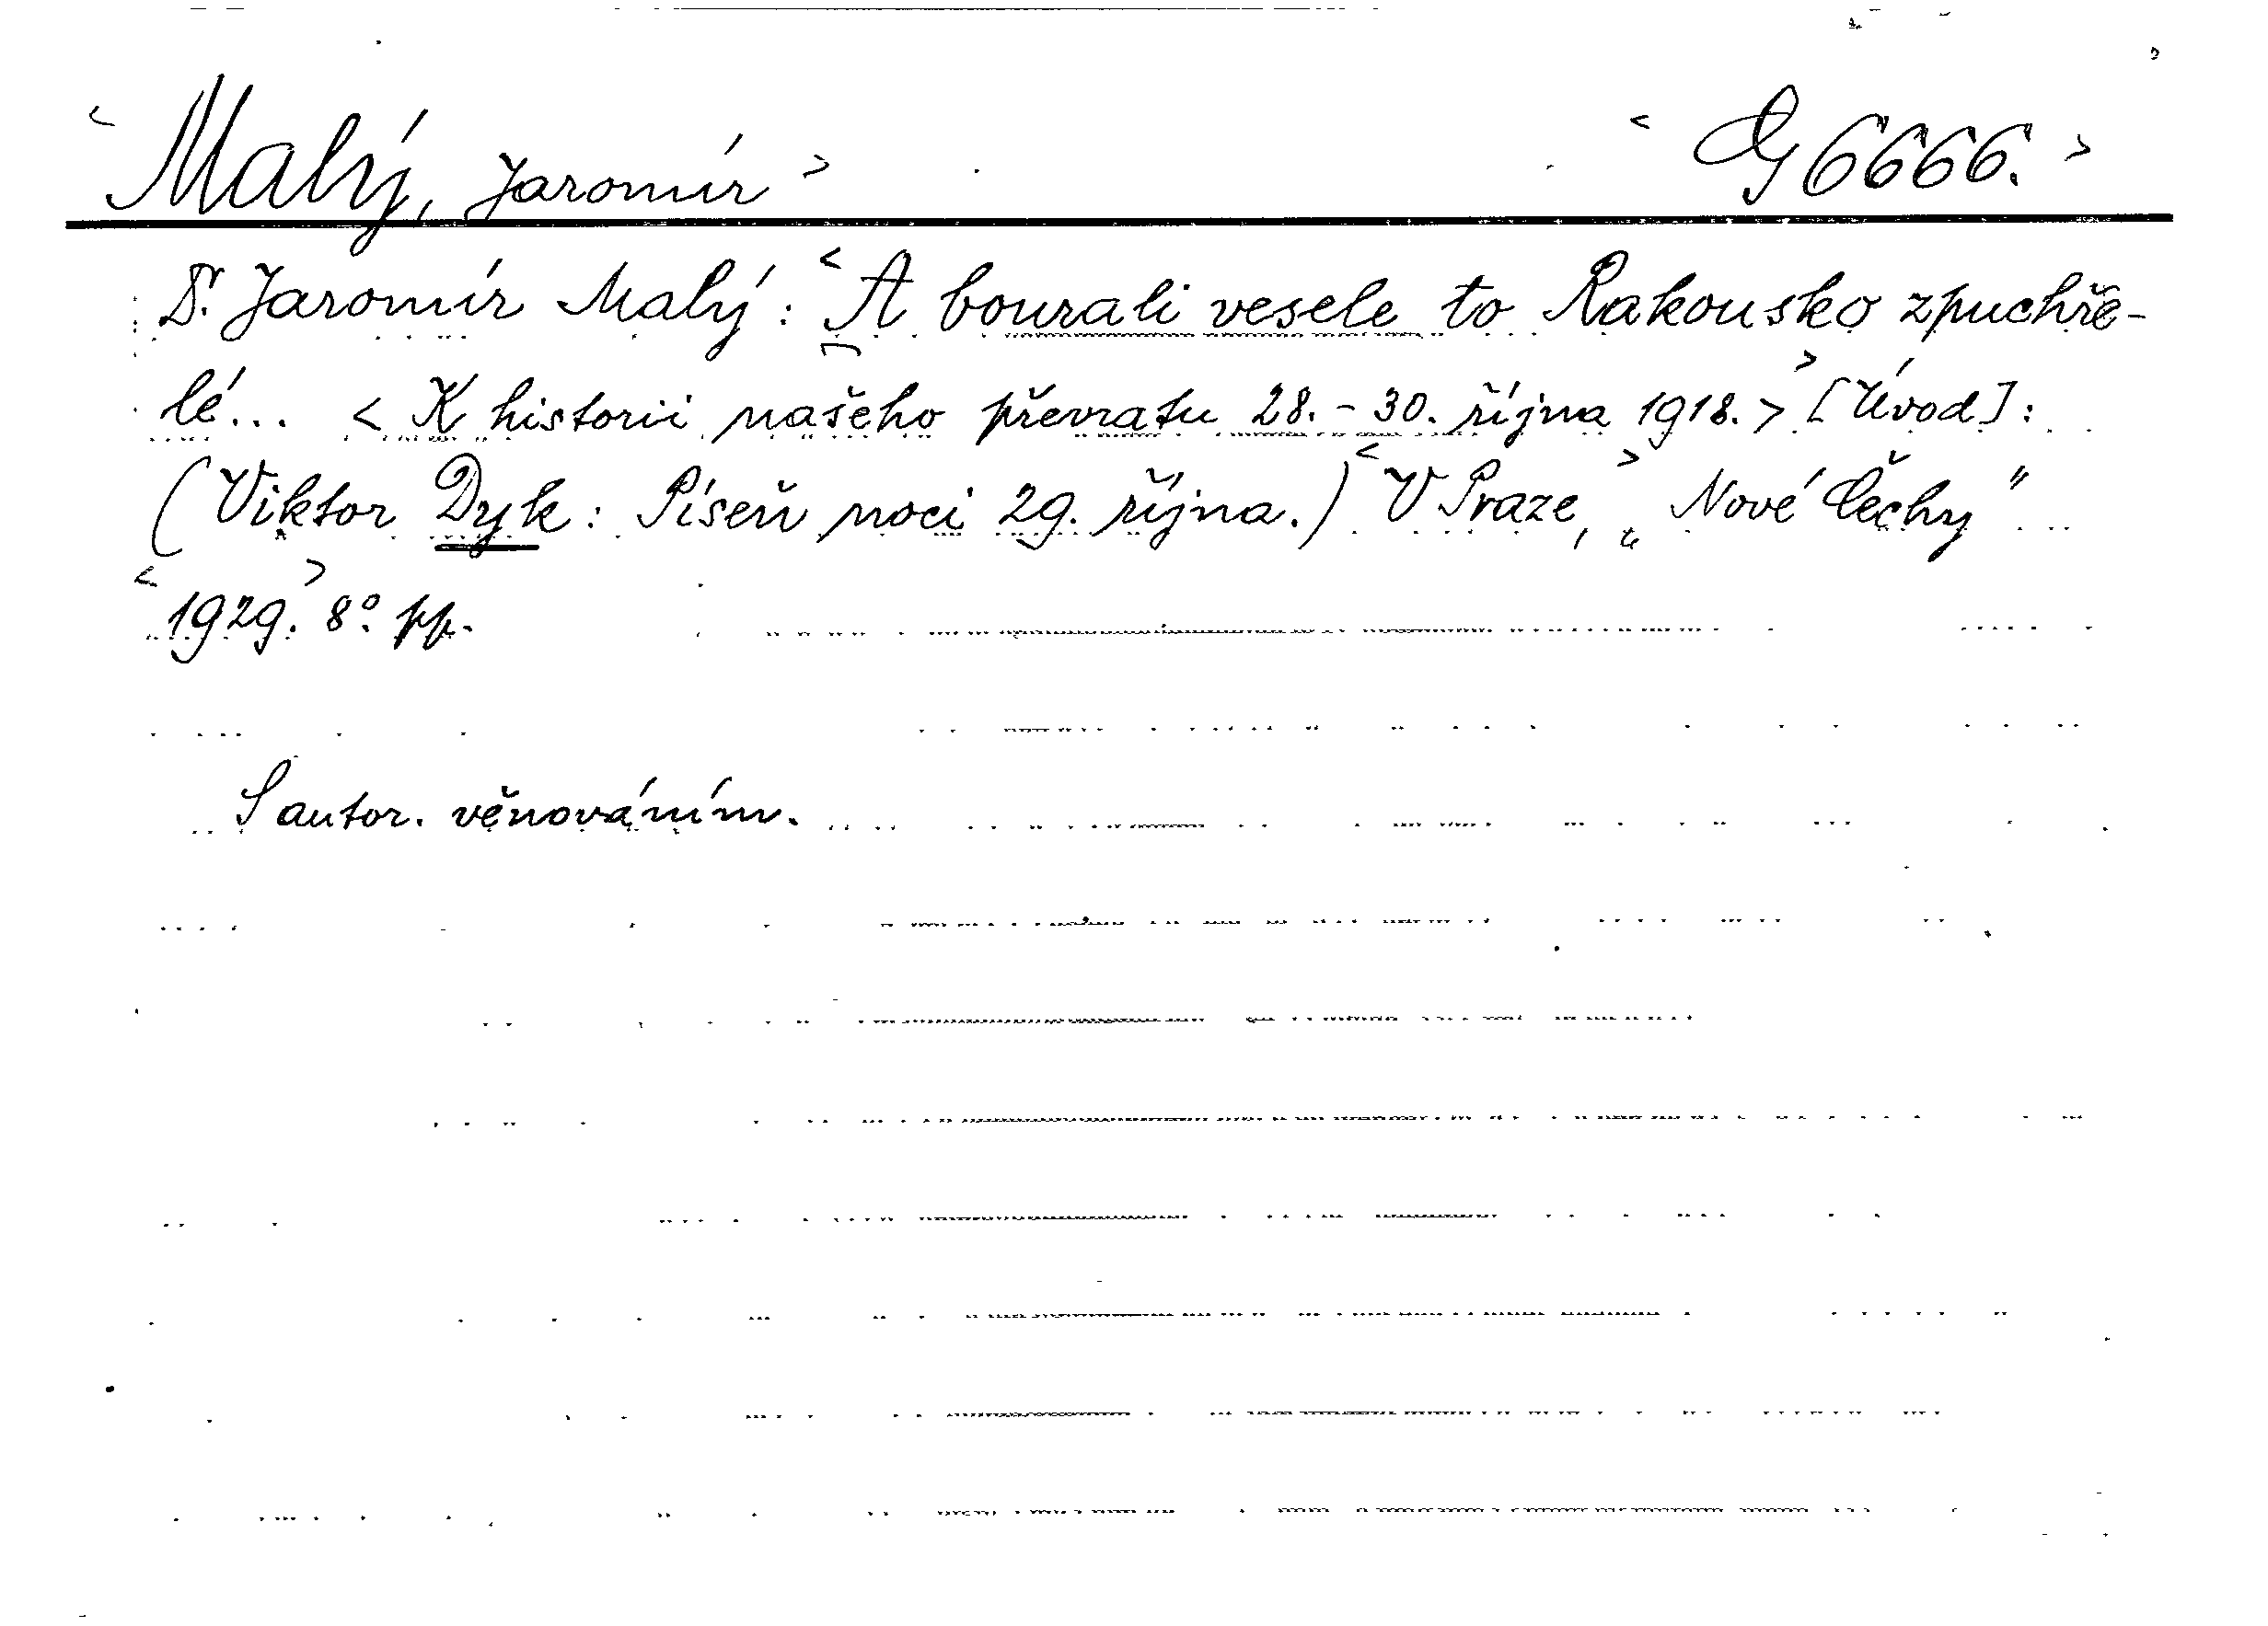 < Malý, Jaromír > < G 6666. >
Dr. Jaromír Malý: < A bourali vesele to Rakousko zpuchře-
lé... < K historii našeho převratu 28. - 30. října 1918. > > [Úvod]:
(Viktor Dyk: Píseň noci 29. října.) < V Praze, > „Nové Čechy"
< 1929. > 8° pp.
S autor. věnováním.